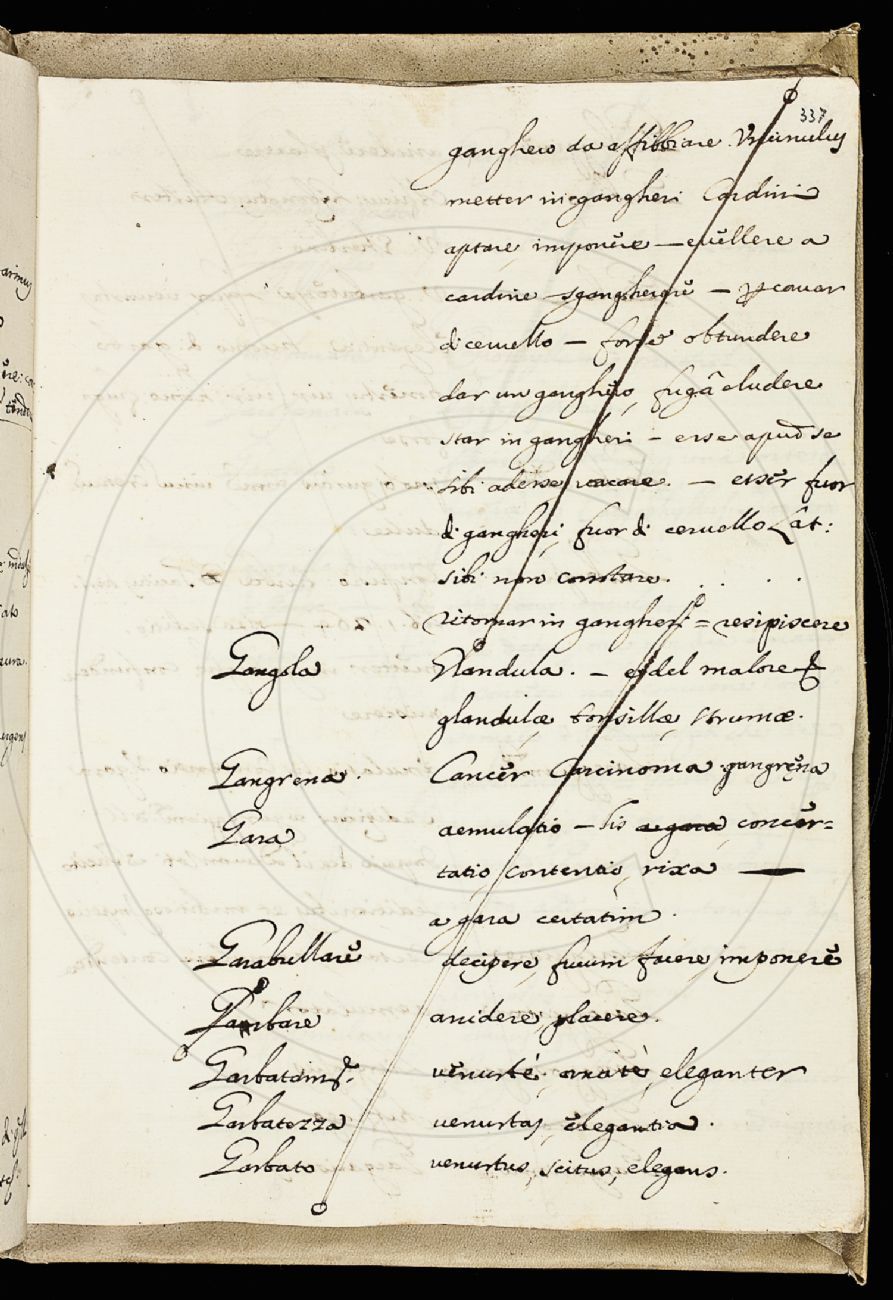 337
ganghero da affibbiare. Uncinulus
metter in gangheri Cardini
aptare, imponere — evellere a
cardine sgangherare — cavar
di cervello — forse obtundere
dar un ganghero, fugâ eludere
star in gangheri — esse apud se
sibi adesse, vacare. — esser fuor
di gangheri, fuor di cervello Lât:
sibi non constare.
ritornar in gangheri = resipiscere
Gangola Glandula. — et del malore
glandulæ, tonsillæ, strumæ.
Gangrena. Cancer Carcinoma gangrena
Gara aemulatio — lis a gara, concer=
tatio, contentio, rixa —
a gara certatim.
Garabullare decipere, fucum facere, imponere
Garbare arridere, placere.
venusté, ornatè, eleganter
Garbatezza venustas, elegantia.
Garbato venustus, scitus, elegans.